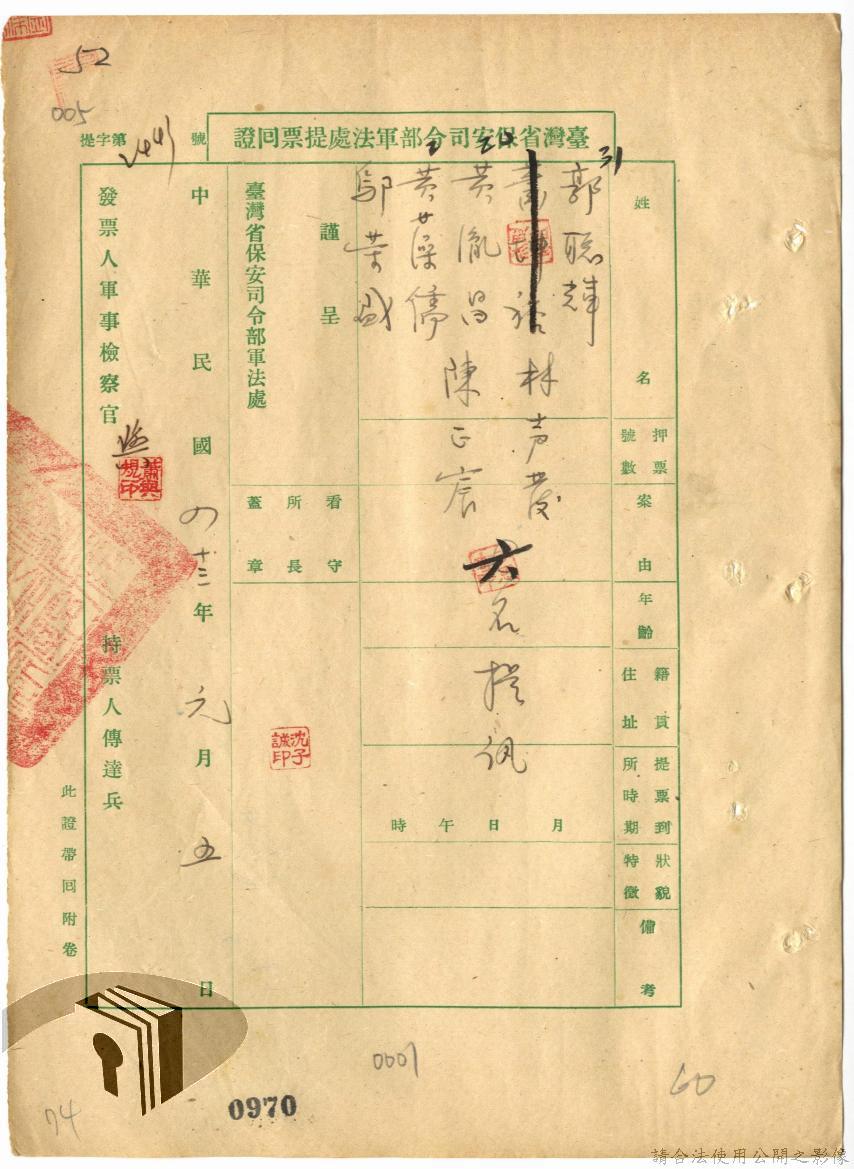 52
005
臺灣省保安司令部軍法處提票回證
提字第2441號
姓名
押票號數
案由
年齡
籍貫住址
提票到所時期
狀貌特徵
備考
31
郭聰輝
林声發
24
黃胤昌
陳正宸
六名提訊
黃
邬
月 日 午 時
謹呈
臺灣省保安司令部軍法處
看守所長蓋章
沈子誠印
中華民國四十三年元月五日
發票人軍事檢察官
蕭與規印
持票人傳達兵
此證帶回附卷
0001
60
74
0970
請合法使用公開之影像